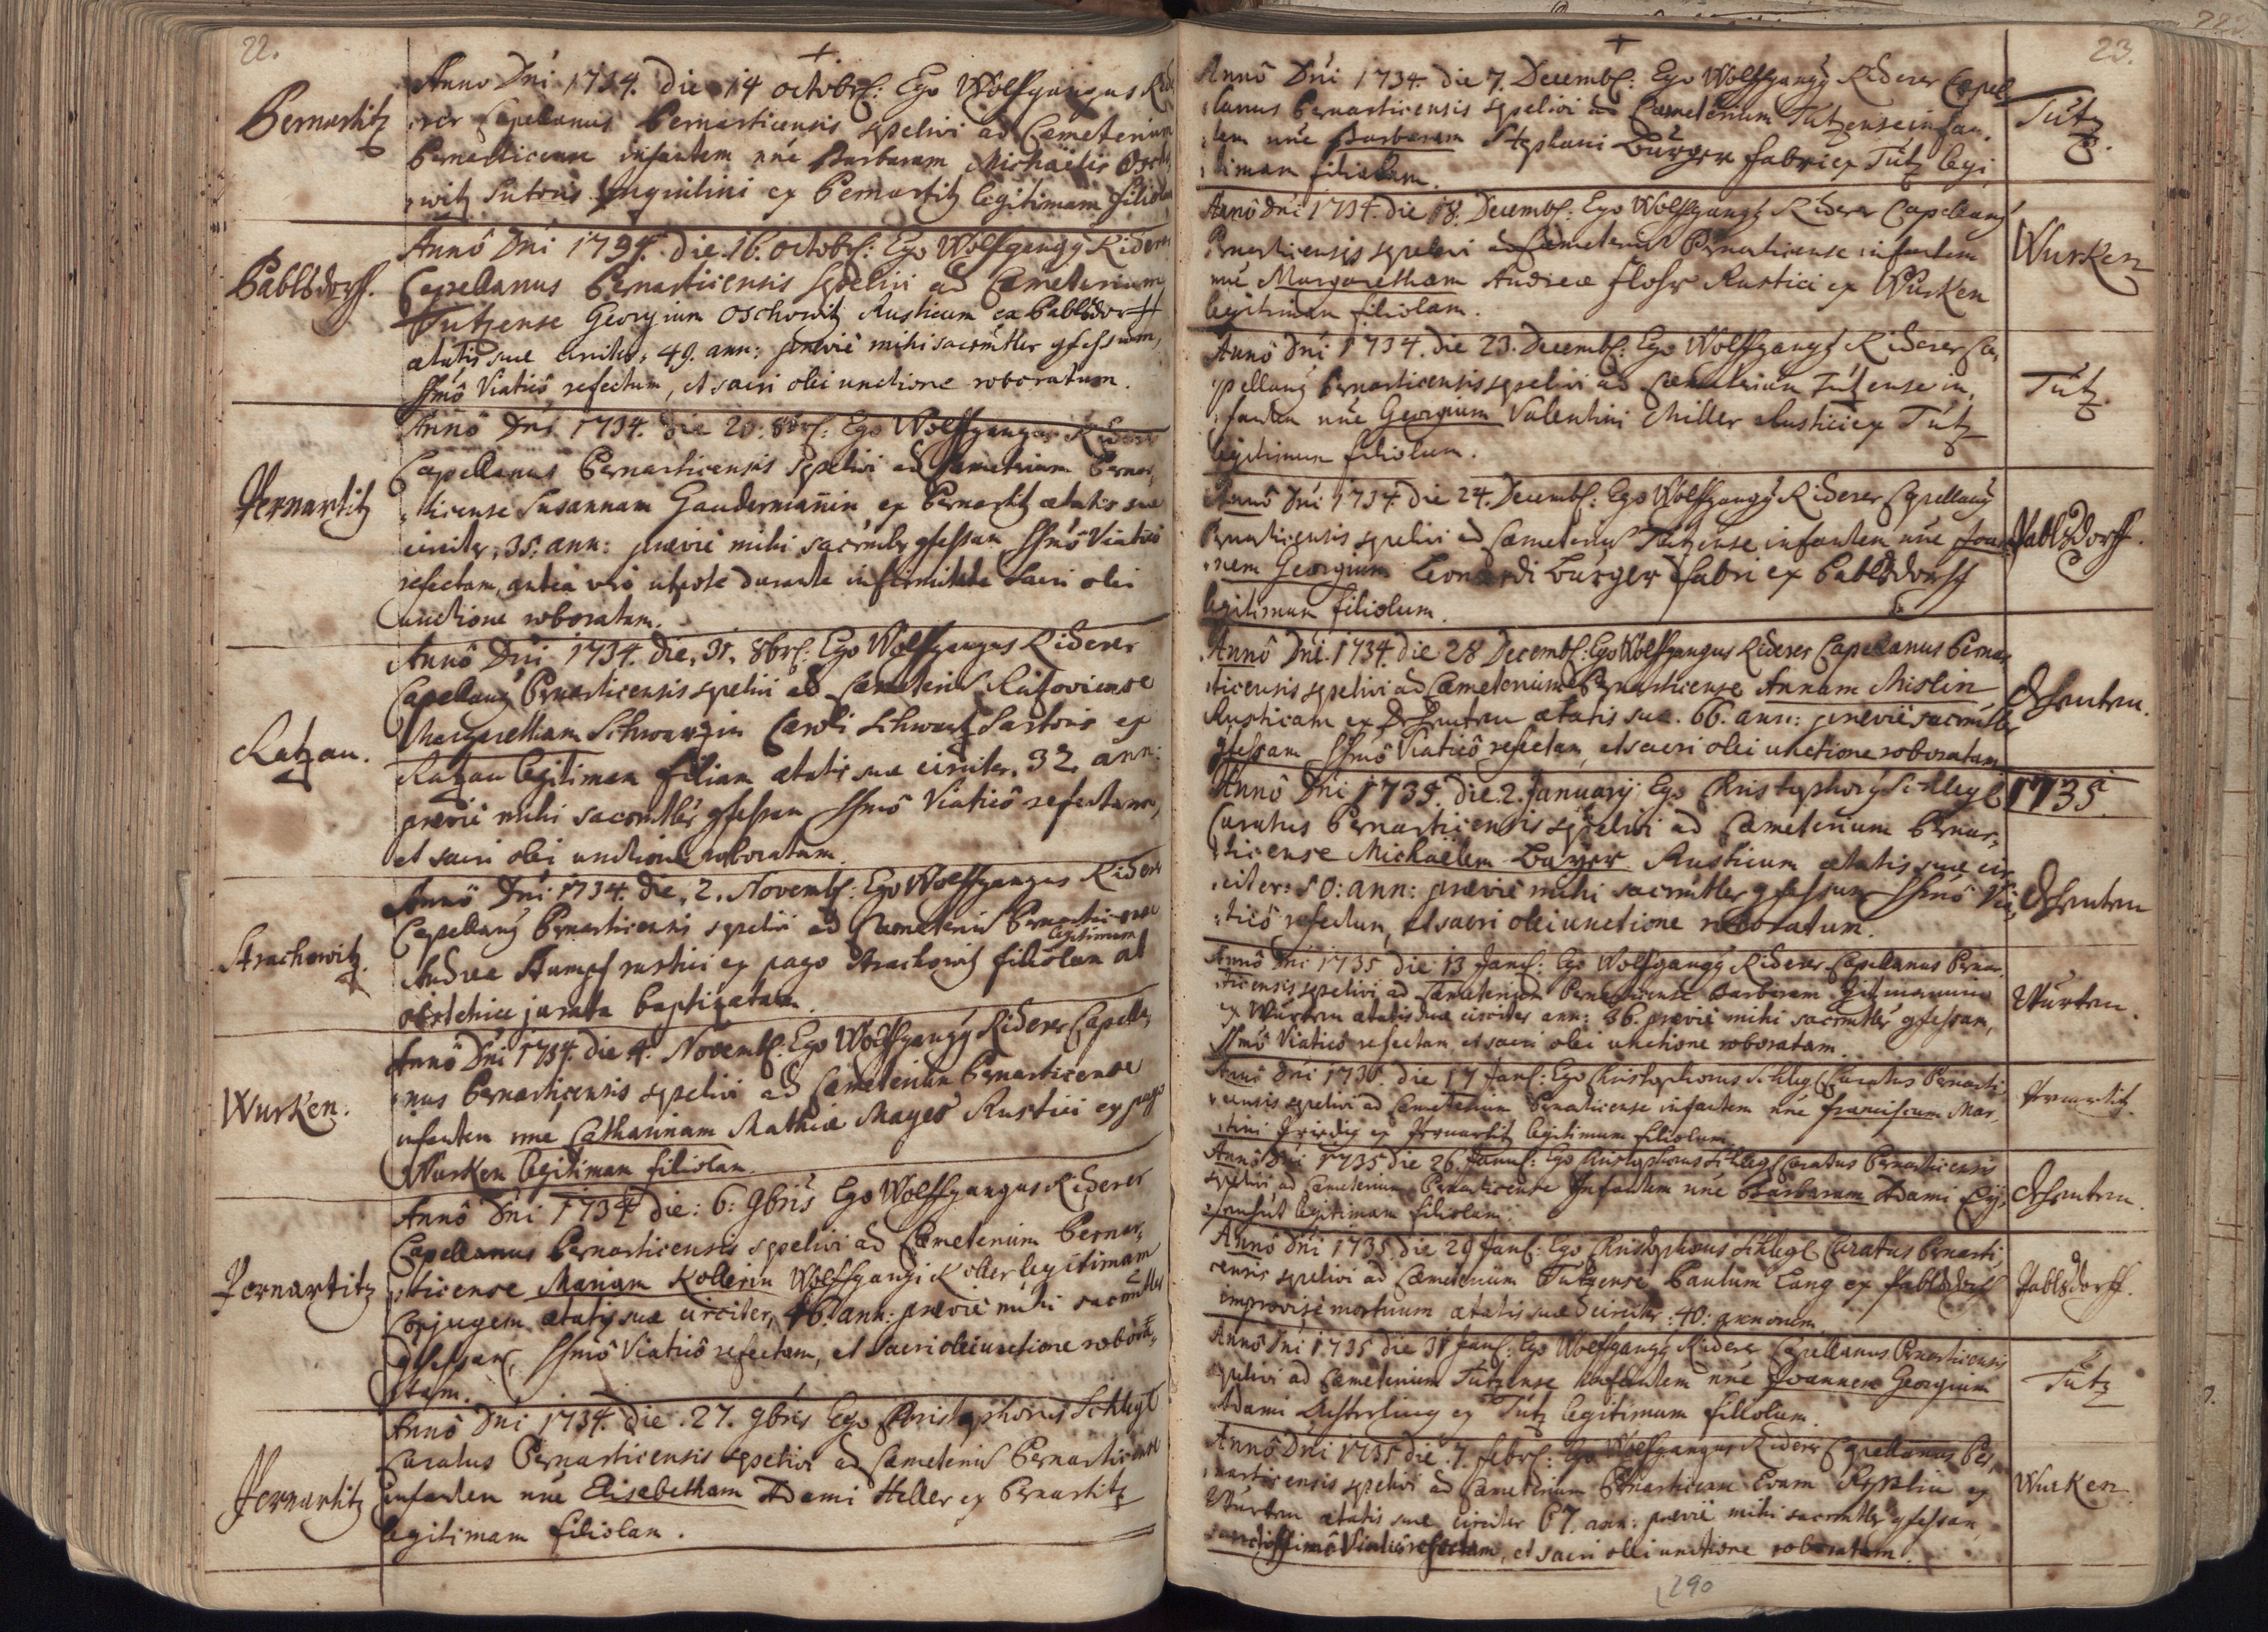 22.
+
Bernartitz
Anno Dni 1734. die 14 octobr: Ego Wolfgangus Ride
rer Capelanus Bernarticensis sepelivi ad Cæmeterium
Bernarticense infantem nne Barbaram Michaëlis
witz Sutoris Inquilini ex Bernartitz legitimam filiolam
Pablsdorff.
Annô Dni 1734. die 16. octobr: Ego Wolfgangg Riderer
Capellanus Bernarticensis sepelivi ad Cæmeterium
Tutzense Georgium Oschowitz Rusticum ex Pablsdorff
ætatis suæ circiter 49. ann: præviè mihi sacrmtler gfessum,
SSmô Viaticô refectum, et sacri olei unctione roboratum.
Pernartitz
Annô Dni 1734. die 20. 8br: Ego Wolffgangus Riderer
Capellanus Bernarticensis sepelivi ad Cæmeterium Bernar,
ticense Susannam Gaudermanin ex Bernartitz ætatis suæ
circiter, 35. ann: præviè mihi sacrmtler gfessam, SSmô Viaticô
refectam, anteà verò utpote durante infirmitate Sacri olei
unctione roboratam.
Ratzau.
Annô Dni 1734. die, 31. 8br: Ego Wolffgangus Riderer
Capellang Bernarticensis sepelivi ad Cæmeteriu Ratzoviense
Margaretham Schwarzin Caroli Schwartz Sartoris ex
Ratzau legitimam filiam ætatis suæ circiter. 32. ann:
præviè mihi sacrmtler gfessam SSmô Viaticô refectam,
et sacri olei unctione roboratam.
Strachowitz.
Annô Dni 1734. die, 2. Novemb: Ego Wolffgangus Riderer
Capellang Bernarticensis sepelivi ad Cæmeteriu Bernarticense
legitimam
Andreæ Stumpf rustici ex pago Strachowitz filiolam ab
obstetrice jurata baptizatam.
Wurken.
Annô Dni 1734. die 4. Novemb: Ego Wolffgangg Riderer Capella,
nus Bernarticensis sepelivi ad Cæmeterium Bernarticense
infantem nne Catharinam Mathiæ Mayer Rustici ex pago
Wurken legitimam filiolam.
Pernartitz
Annô Dni 1734 die: 6: 9bris Ego Wolffgangus Riderer
Capellanus Bernarticensis sepelivi ad Cæmeterium Bernar,
ticense Mariam Kollerin Wolffgangi Koller legitimam
Conjugem ætatis suæ circiter, 46. ann: præviè mihi sacrmtler
gfessam, SSmô Viaticô refectam, et sacri olei unctione robora,
tam.
Pernartitz
Annô Dni 1734. die .27. 9bris Ego Christophorus Schlegl
Curatus Bernarticensis sepelivi ad Cæmeteriu Bernarticense
infantem nne Elisabetham Adami Heller ex Bernartitz
legitimam filiolam.
23.
+
Annô Dni 1734. die 7. Decemb: Ego Wolffgangg Riderer Capel,
lanus Bernarticensis sepelivi ad Cæmeterium Tutzense infan,
tem nne Barbaram Stephani Burger fabri ex Tutz legi,
timam filiolam.
Tutz.
Annô Dni 1734. die 18. Decemb: Ego Wolffgangg Riderer Capellang
Bernarticensis sepelivi ad Cæmeteriu Bernarticense infantem
nne Margaretham Andreæ Flohr Rustici ex Wurken
legitimam filiolam.
Wurken
Annô Dni 1734. die 23. Decemb: Ego Wolffgangg Riderer Ca,
pellang Bernarticensis sepelivi ad Cæmeterium Tutzense in,
fantem nne Georgium Valentini Miller Rustici ex Tutz
legitimum filiolum.
Tutz.
Annô Dni 1734. die 24. Decemb: Ego Wolffgangg Riderer Capellang
Bernarticensis sepelivi ad Cæmeteriu Tutzense infantem nne Joan
nem Georgium Leonardi Burger fabri ex Pablsdorff
legitimum filiolum.
Pablsdorff.
Annô Dni. 1734. die 28 Decemb: Ego Wolffgangus Riderer Capellanus Bernar
ticensis sepelivi ad Cæmeterium Bernarticense Annam Mislin
Rusticam ex ætatis suæ. 66. ann: præviè sacrmtler
gfessam SSmô Viaticô refectam, et sacri olei unctione roboratam
Annô Dni 1735. die. 2. Januarij Ego Christophorg Schlegl
Curatus Bernarticensis sepelivi ad Cæmeterium Bernar,
ticense Michaëlem Bayer Rusticum ætatis suæ cir,
citer: 50: ann: præviè mihi sacrmtler gfessum SSmô Via,
ticô refectum, et sacri olei unctione roboratum.
1735
Annô Dni 1735 die 13 Jan: Ego Wolfgangg Riderer Capellanus Bernar,
ticensis sepelivi ad Cæmeterium Bernarticense Barbaram
ex Wurken ætatis suæ circiter ann: 36. præviè mihi sacrmtler gfessam,
SSmô Viaticô refectam, et sacri olei unctione roboratam.
Wurken.
Annô Dni 1735. die 17 Jan: Ego Christophorus Schlegl Curatus Bernarti,
censis sepelivi ad Cæmeterium Bernarticense infantem nne Franciscum Mar,
tini ex Pernartitz legitimum filiolum.
Pernartitz.
Annô Dni 1735 die 26. Janu: Ego Christophorus Schlegl Curatus Bernarticensis
sepelivi ad Cæmeterium Bernarticense Infantem nne Barbaram Adami
legitimam filiolam.
Annô Dni 1735. die 29 Jan: Ego Christophorus Schlegl Curatus Bernarti,
censis sepelivi ad Cæmeterium Tutzense Paulum Lang ex Pablsdorff
improvisè mortuum ætatis suæ circiter: 40: annorum.
Pablsdorff.
Annô Dni 1735 die 31 Jan: Ego Wolffgangg Riderer Capellanus Bernarticensis
sepelivi ad Cæmeterium Tutzense Infantem nne Joannem Georgium
Adami ex Tutz legitimum filiolum.
Tutz
Annô Dni 1735 die .7. febr: Ego Wolffgangus Riderer Capellanus Ber,
narticensis sepelivi ad Cæmeterium Bernarticense Evam ex
Wurken ætatis suæ circiter 67. ann: præviè mihi sacrmtler gfessam,
sanctissimô Viaticô refectam, et sacri olei unctione roboratam.
Wurken.
290